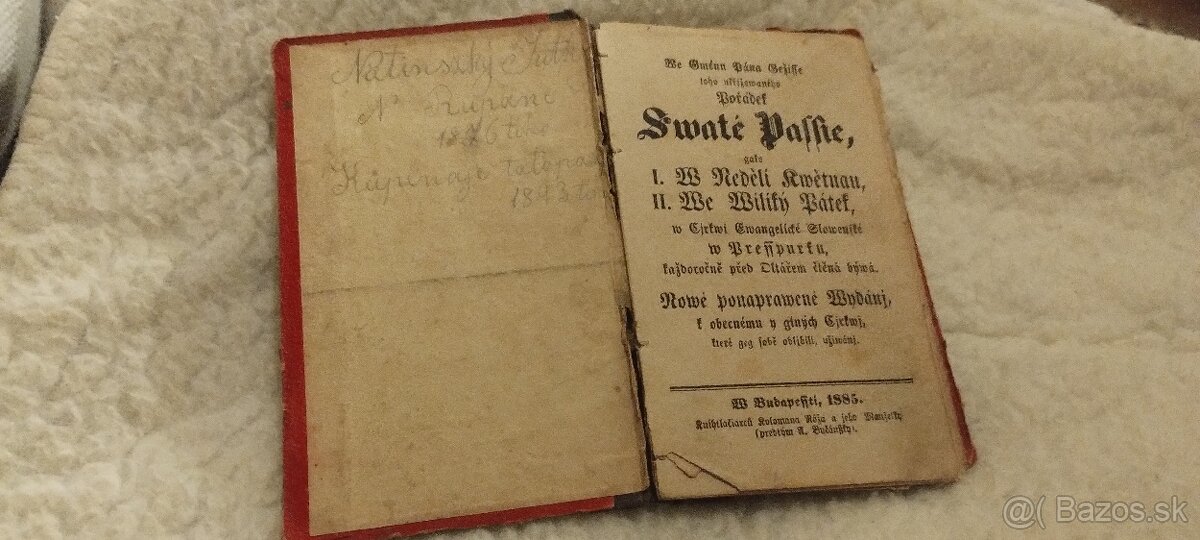 We Gménu Pána Gežisse
toho ukřižowaného
Pořádek
Swaté Passie,
gako
I. W Neděli Kwětnau,
II. We Wiliký Pátek,
w Cjrkwi Ewangelické Slowenské
w Presspurku,
každoročně před Oltářem čtěná býwá.
Nowé ponaprawené Wydánj,
k obecnému y giných Cjrkwj,
které geg sobě oblibili, užiwánj.
W Budapessti, 1885.
Knihtlačiarců Kolomana Róža a jeho Manželky
(predtým A. Bučánsky).
1843
@( Bazos.sk